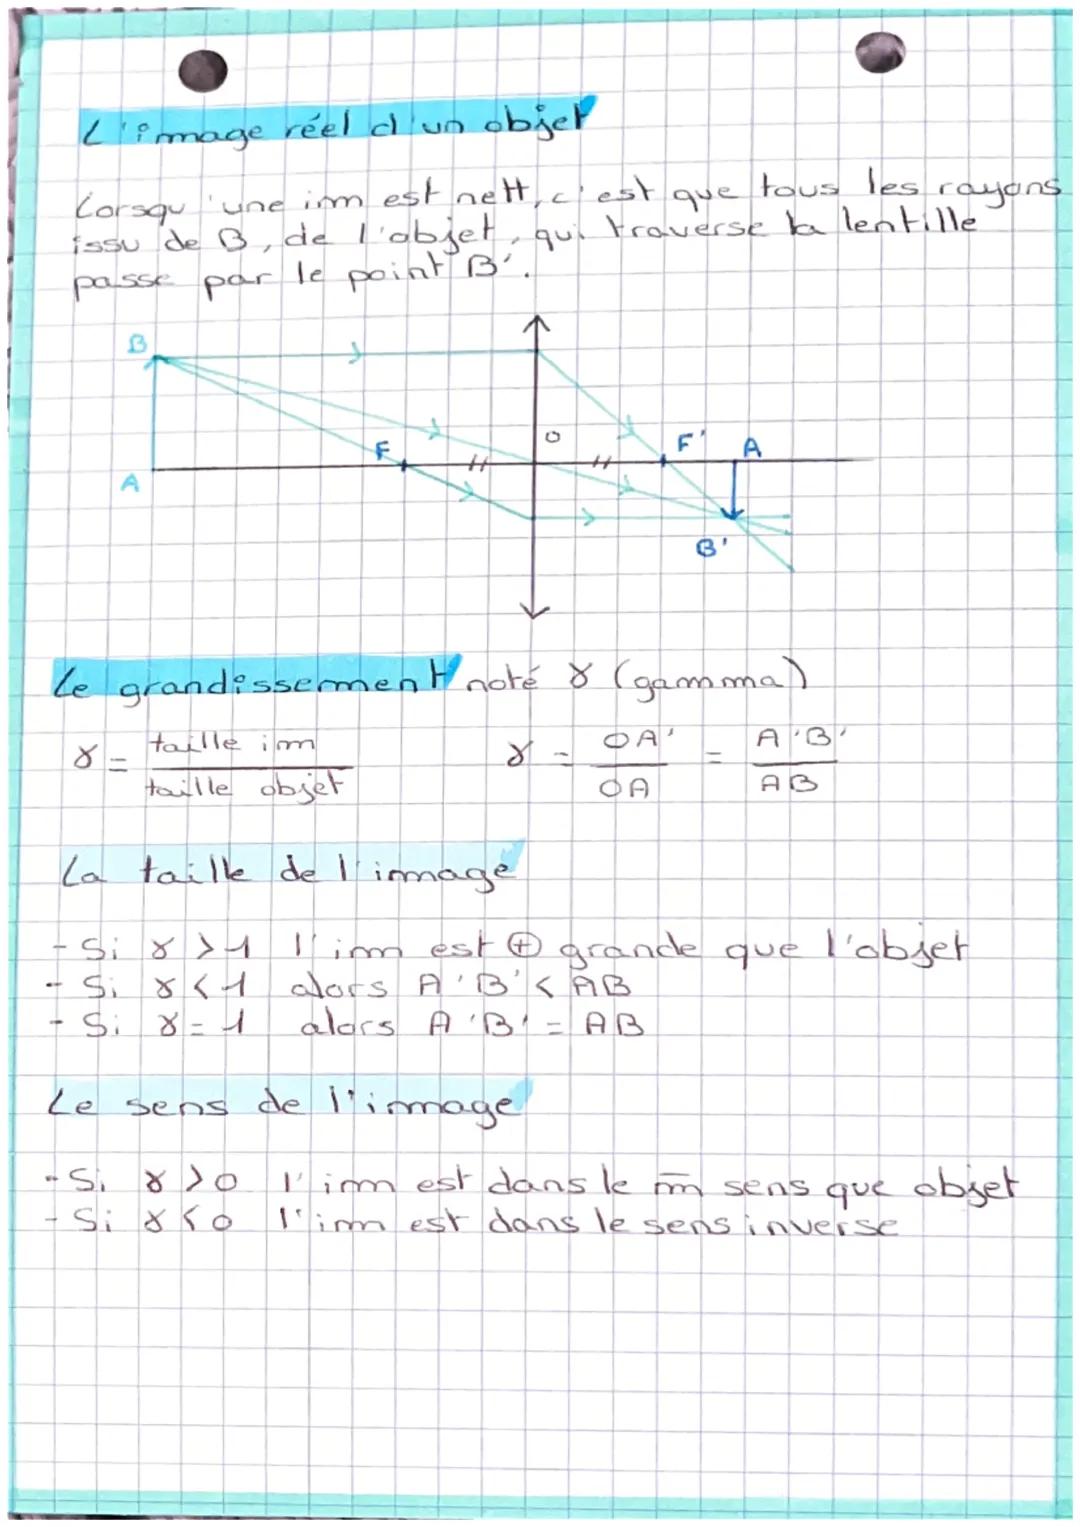 L'image réel d'un objet
Lorsqu'une im est nett, c'est que tous les rayons
issu de B, de l'objet, qui traverse la lentille
passe par le point B'.
B
F
O
F'
A
A
B'
Le grandissement noté γ (gamma)
γ = taille im / taille objet
γ = OA' / OA = A'B' / AB
La taille de l'image
- Si γ > 1 l'im est ⊕ grande que l'objet
- Si γ < 1 alors A'B' < AB
- Si γ = 1 alors A'B' = AB
Le sens de l'image
- Si γ > 0 l'im est dans le m̄ sens que objet
- Si γ < 0 l'im est dans le sens inverse